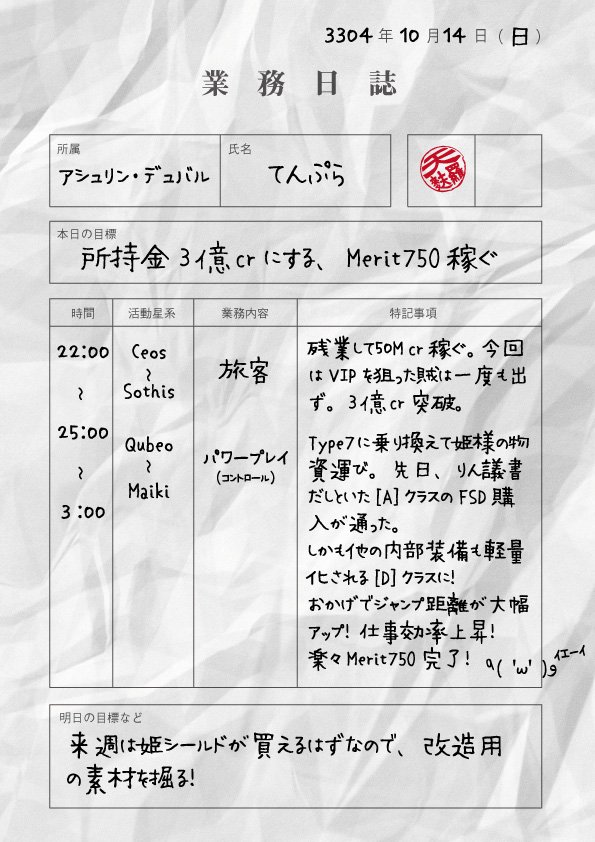 3304 年 10 月 14 日 ( 日 )
業務日誌
所属
アシュリン・デュバル
氏名
てんぷら
天麩羅
本日の目標
所持金 3億cr にする、 Merit750 稼ぐ
時間 活動星系 業務内容 特記事項
22:00
~
25:00
~
3:00
Ceos
~
Sothis
Qubeo
~
Maiki
旅客
パワープレイ
(コントロール)
残業して50M cr 稼ぐ。今回
は VIP を狙った賊は一度も出
ず。 3億cr 突破。
Type7に乗り換えて姫様の物
資運び。 先日、りん議書
だしといた [A] クラスの FSD 購
入が通った。
しかも他の内部装備も軽量
化される [D] クラスに!
おかげでジャンプ距離が大幅
アップ! 仕事効率上昇!
楽々Merit750 完了! q( 'w' )9 イエーイ
明日の目標など
来週は姫シールドが買えるはずなので、 改造用
の素材を掘る!